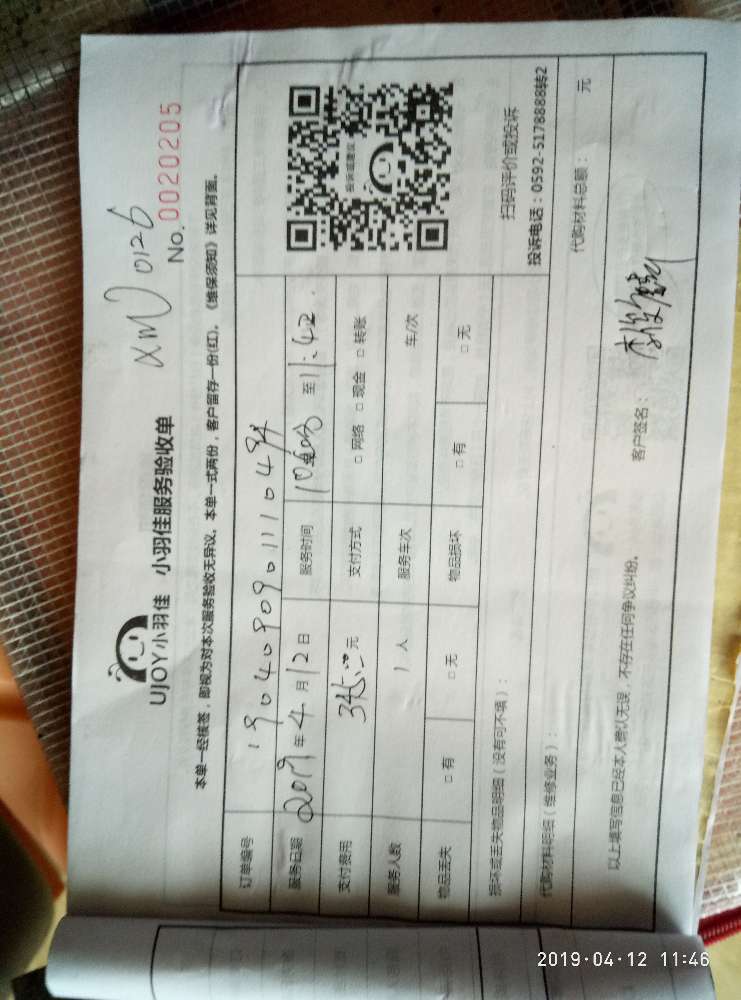 xm 0126
No. 0020205
UJOY小羽佳 小羽佳服务验收单
本单一经核签，即视为对本次服务验收无异议。本单一式两份，客户留存一份(红)。《维保须知》详见背面。
订单编号
服务日期 2019年4月12日 服务时间 至11:42
支付费用 元 支付方式 □网络 □现金 □转账
服务人数 1人 服务车次 车/次
物品丢失 □有 □无 物品损坏 □有 □无
投诉或建议
扫码评价或投诉
投诉电话：0592-5178888转2
损坏或丢失物品明细（没有可不填）：
代购材料明细（维修业务）： 代购材料总额： 元
以上填写信息已经本人确认无误，不存在任何争议纠纷。 客户签名：
2019·04·12 11:46